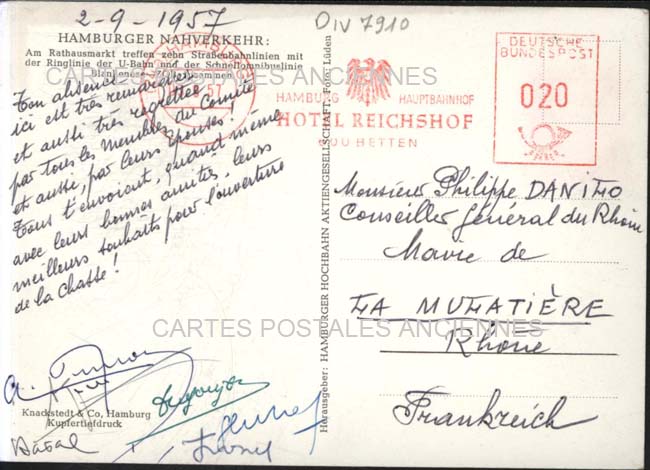 2-9-1957
DIV 7910
HAMBURGER NAHVERKEHR:
Am Rathausmarkt treffen zehn Straßenbahnlinien mit
der Ringlinie der U-Bahn und der Schnellomnibuslinie
Blankenese
zusammen
CARTES POSTALES ANCIENNES
Ton absence
ici est très remarquée
et aussi très regrettée
par tous les membres du Comité
et aussi, par leurs épouses!
Tous t'envoient, quand même
avec leurs bonnes amitiés, leurs
meilleurs souhaits pour l'ouverture
de la chasse!
Knackstedt & Co, Hamburg
Kupfertiefdruck
Herausgeber: HAMBURGER HOCHBAHN AKTIENGESELLSCHAFT, Foto: Luden
HAMBURG HAUPTBAHNHOF
HOTEL REICHSHOF
BETTEN
DEUTSCHE
BUNDESPOST
020
Monsieur Philippe DANILO
Conseiller Général du Rhône
Maire de
LA MULATIÈRE
CARTES POSTALES ANCIENNES
Rhône
Frankreich